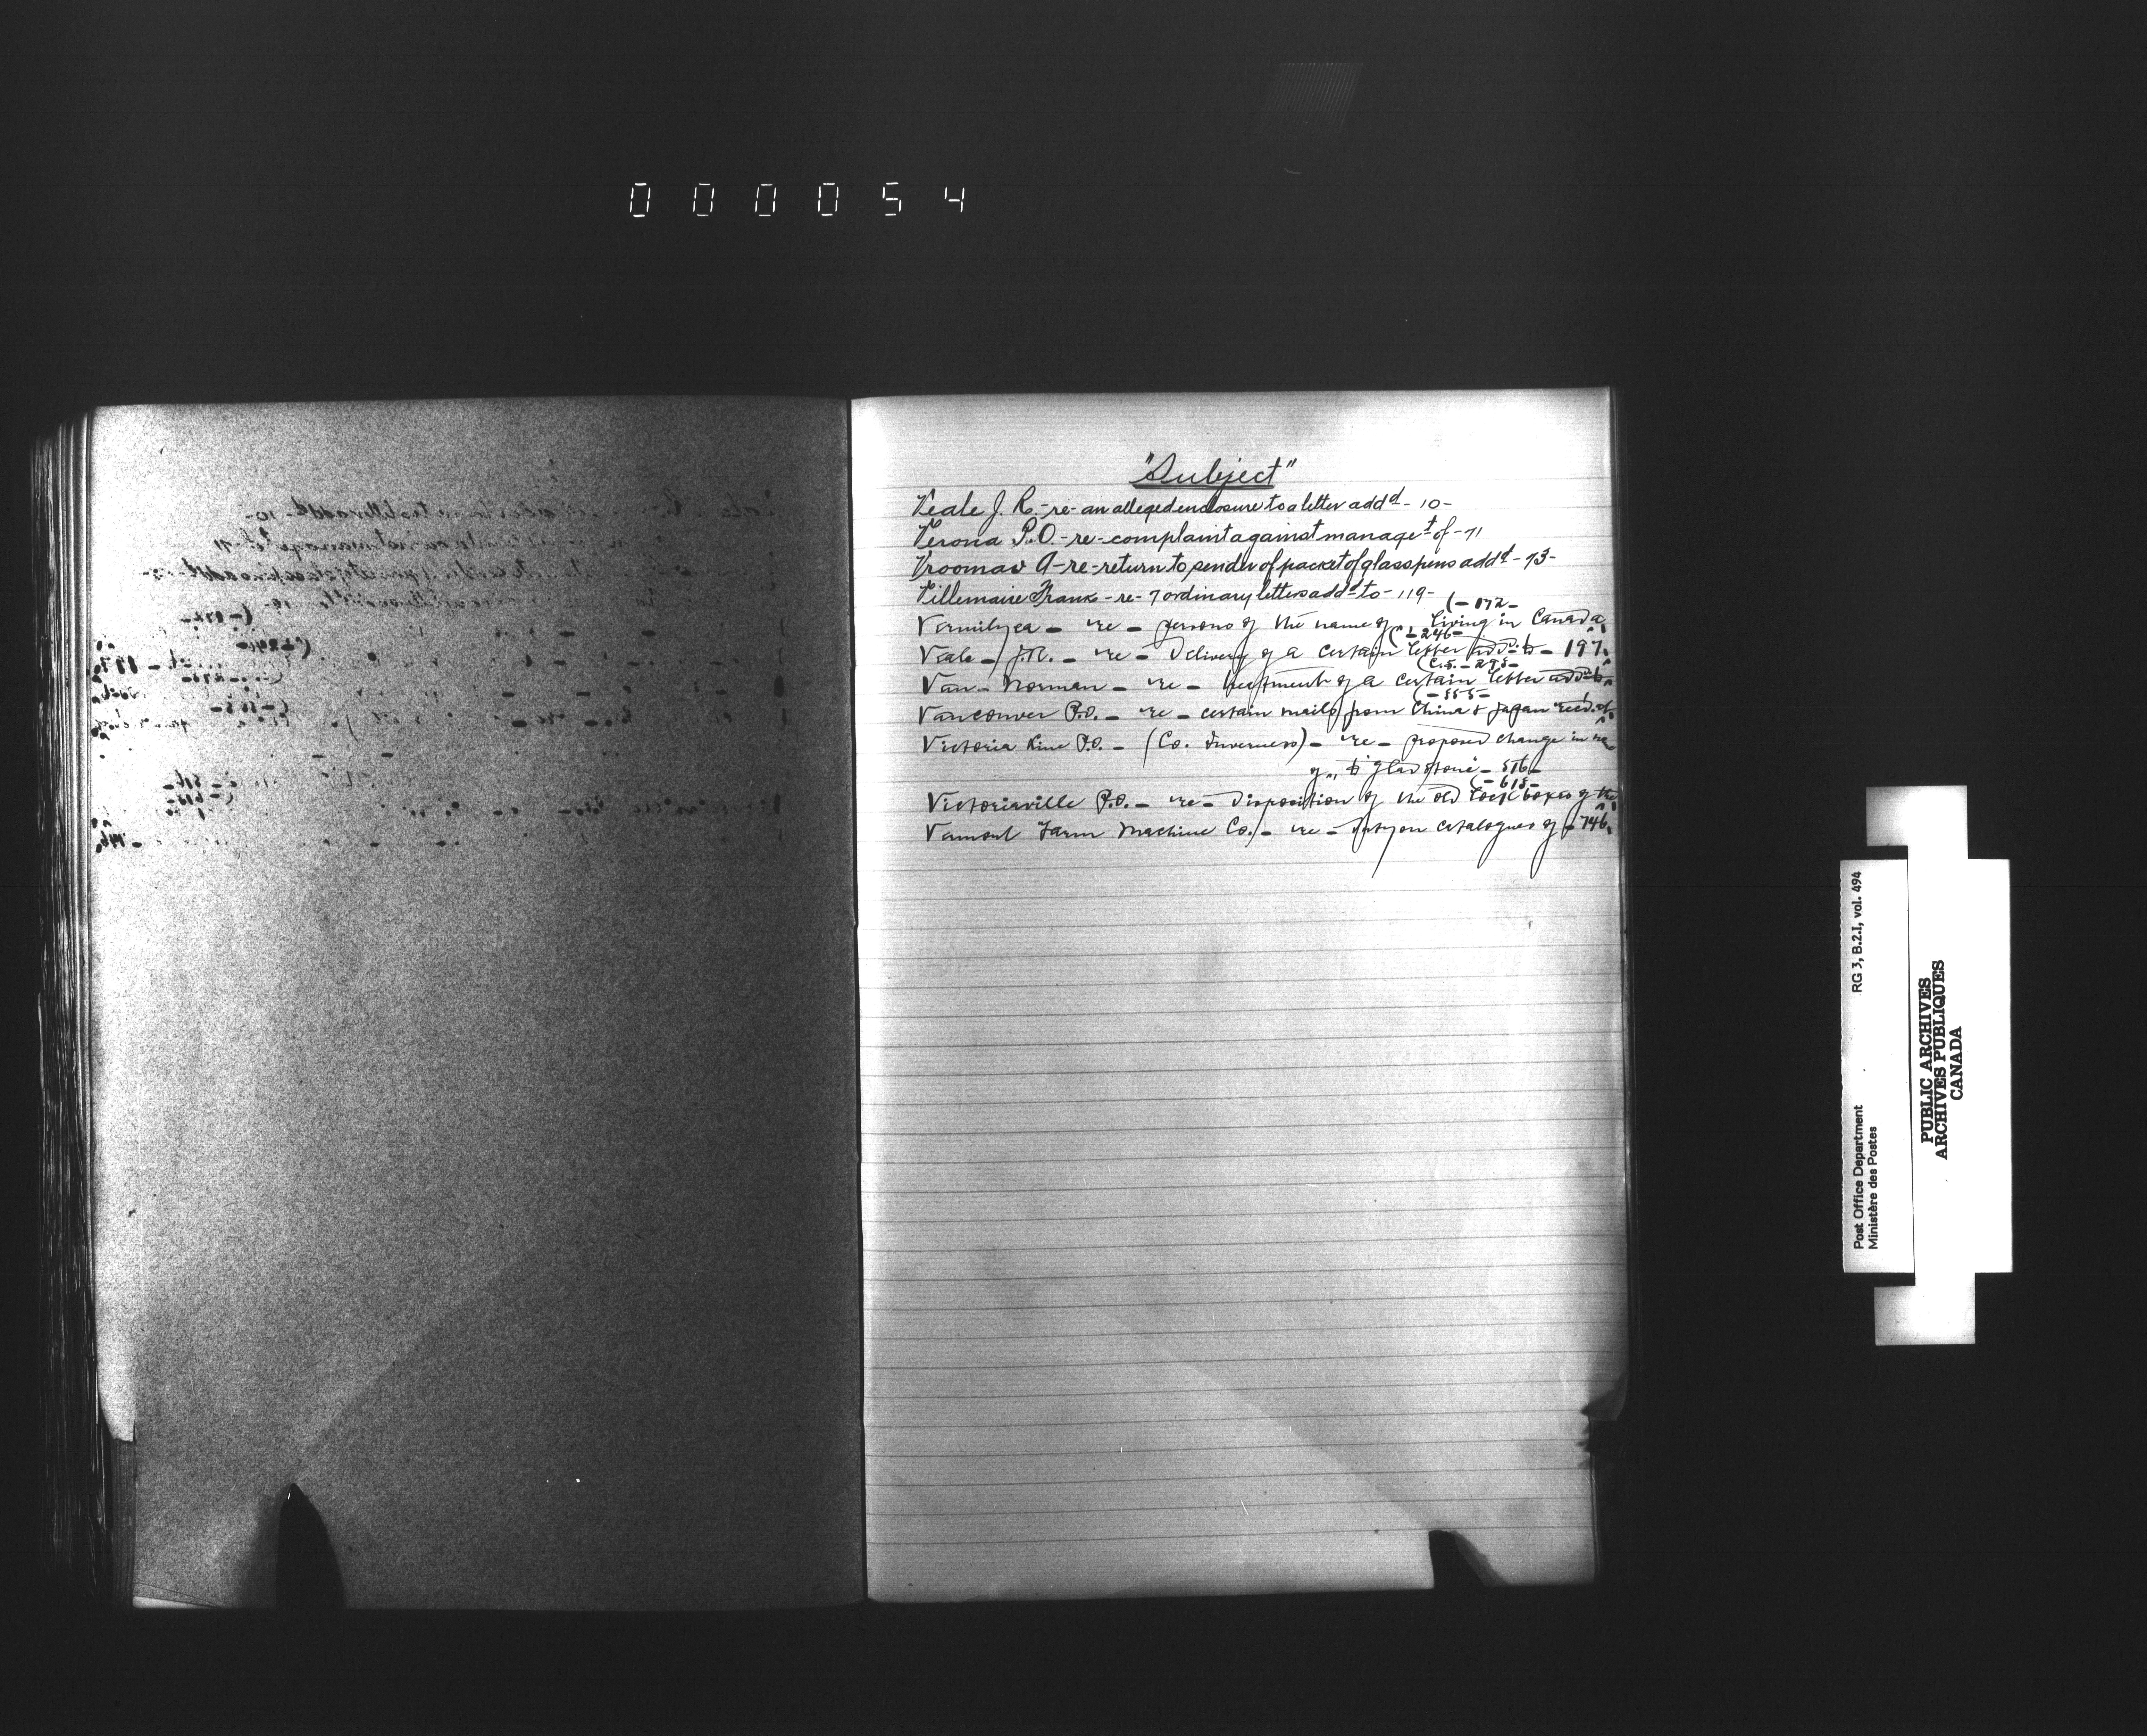 000054
"Subject"
Veale J. R. - re - an alleged enclosure to a letter addd - 10 -
Verona P.O. - re - complaint against managet of - 71
Vrooman A - re - return to sender of packet of glass pens addd - 73 -
Villemaire Frank - re - 7 ordinary letters addd to - 119 -
(- 172 -
Vermilyea - re - persons of the name of living in Canada
(- 246 -
Veale - J.R. - re - Delivery of a certain letter add'd to - 197.
(C.S. - 298 -
Van Norman - re - treatment of a certain letter add'd to
(- 555 -
Vancouver P.O. - re - certain mails from China & Japan recd. at
Victoria Line P.O. - (Co. Inverness) - re - proposed change in
of " to Gladstone - 576 -
(- 618 -
Victoriaville P.O. - re - Disposition of the old lock boxes of the
Vermont Farm Machine Co. - re - duty on catalogues of - 746.
RG 3, B.2.I, vol. 494
Post Office Department
Ministère des Postes
PUBLIC ARCHIVES
ARCHIVES PUBLIQUES
CANADA